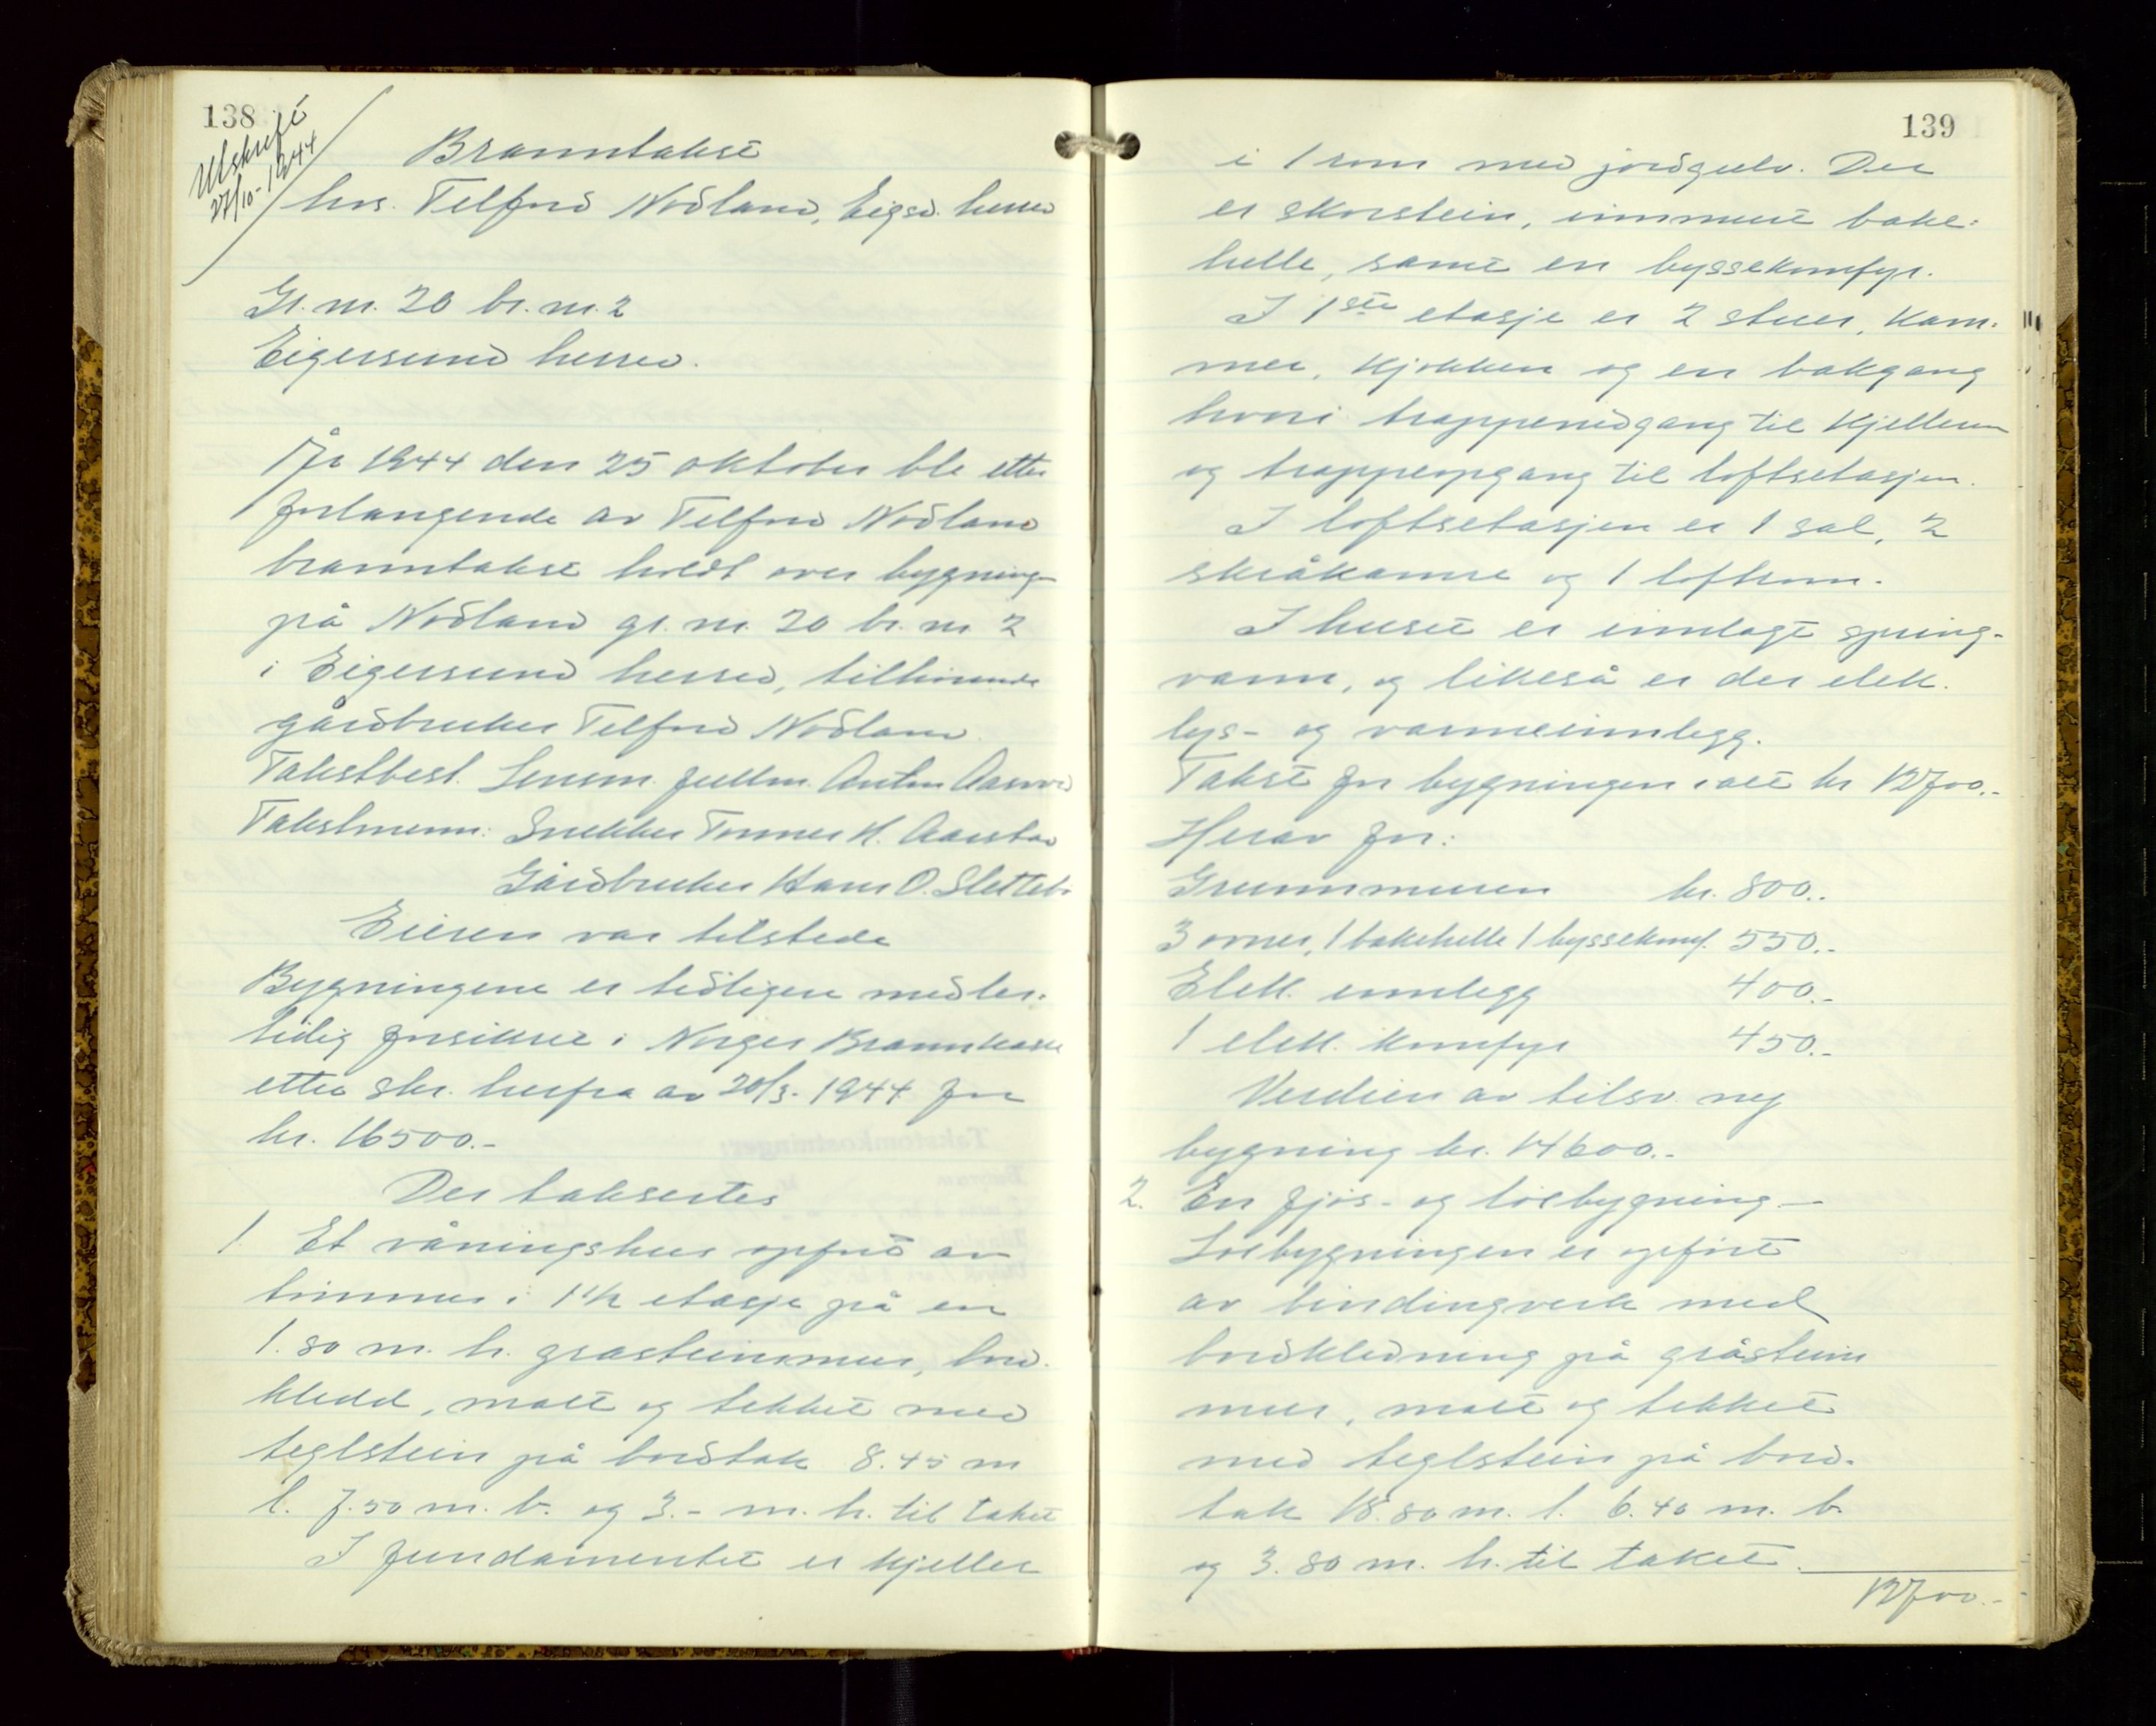 138
Utskrift
27/10-1944
Branntakst
hos Telford Nodland, Eigsd. herred
Gr. nr. 20 br. nr. 2
Eigersund herred.
År 1944 den 25 oktober ble etter
forlangende av Telford Nodland
branntakst holdt over bygning
på Nodland gr. nr. 20 br. nr 2
i Eigersund herred, tilhørende
gårdbruker Telford Nodland.
Takstbest. Lensm. fullm. Anton
Takstmenn: Snekker H. Aarstad
Gårdbruker Hans O. Slettebø
Eieren var tilstede
Bygningene er tidligere midler-
tidig forsikret i Norges Brannkasse
etter skr. herfra av 20/3-1944 for
kr. 16500.-
Der takseres
1. Et våningshus opført av
tømmer i 1½ etasje på en
1.80 m. h. gråsteinsmur, bord-
kledd, malt og tekket med
teglstein på bordtak 8.45 m
l. 7.50 m. b. og 3.- m. h. til taket
I fundamentet er kjeller
139
i 1 rom med jordgulv. Der
er skorstein, innmuret bake-
helle, samt en byssekomfyr.
I 1ste etasje er 2 stuer, kam-
mer, kjøkken og en bakgang
hvori trappenedgang til kjelleren
og trappeopgang til loftsetasjen.
I loftsetasjen er 1 sal, 2
skråkamre og 1 loftrom.
I huset er innlagt spring-
vann, og likeså er der elek.
lys- og varmeinnlegg.
Takst for bygningen i alt kr 12700.-
Herav for:
Grunnmuren kr. 800.-
3 ovner, 1 bakehelle 1 byssekomf. 550.-
Elek. innlegg 400.-
1 elek. komfyr 450.-
Verdien av tilsv. ny
bygning kr. 14600.-
2. En fjøs- og løebygning -
Løebygningen er opført
av bindingverk med
bordkledning på gråsteins
mur, malt og tekket
med teglstein på bord-
tak 18.80 m. l. 6.40 m. b.
og 3.80 m. h. til taket.
12700.-